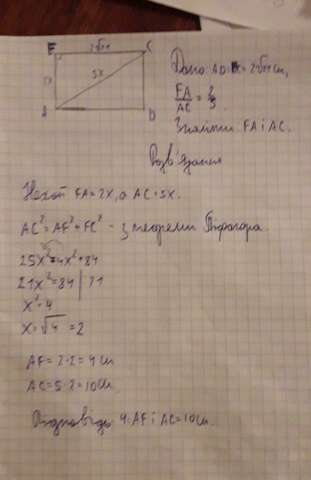 F 2√21 C
2x 5x
A D
Дано: AD = 2√21 см,
FA/AC = 2/5
Знайти: FA і AC.
Розв'язання
Нехай FA = 2x, а AC = 5x.
AC² = AF² + FC² - з теореми Піфагора.
25x² = 4x² + 84
21x² = 84 | 21
x² = 4
x = √4 = 2
AF = 2·2 = 4 см
AC = 5·2 = 10 см.
Відповідь: 4 AF і AC = 10 см.